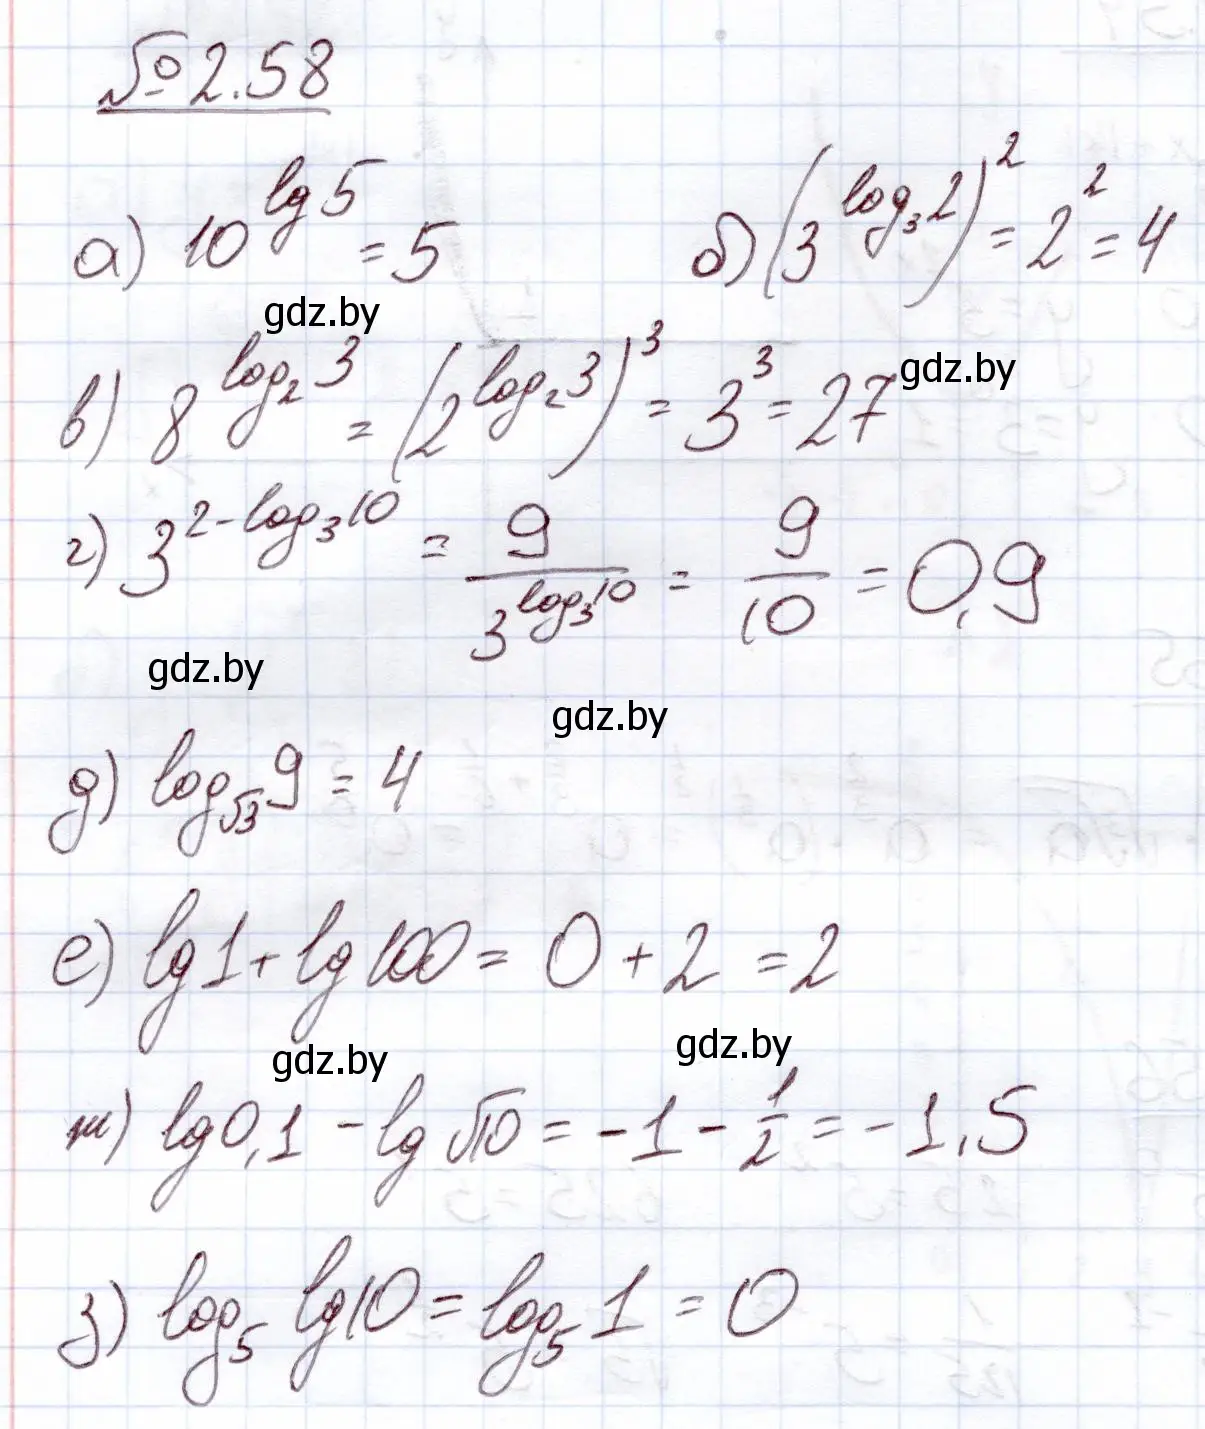 №2.58
а) 10^{lg 5} = 5 б) (3^{log₃ 2})² = 2² = 4
gdz.by
в) 8^{log₂ 3} = (2^{log₂ 3})³ = 3³ = 27 gdz.by
г) 3^{2-log₃ 10} = 9/3^{log₃ 10} = 9/10 = 0,9
gdz.by
gdz.by
д) log_{√3} 9 = 4
е) lg 1 + lg 100 = 0 + 2 = 2
gdz.by gdz.by
ж) lg 0,1 - lg √10 = -1 - 1/2 = -1,5
з) log₅ lg 10 = log₅ 1 = 0